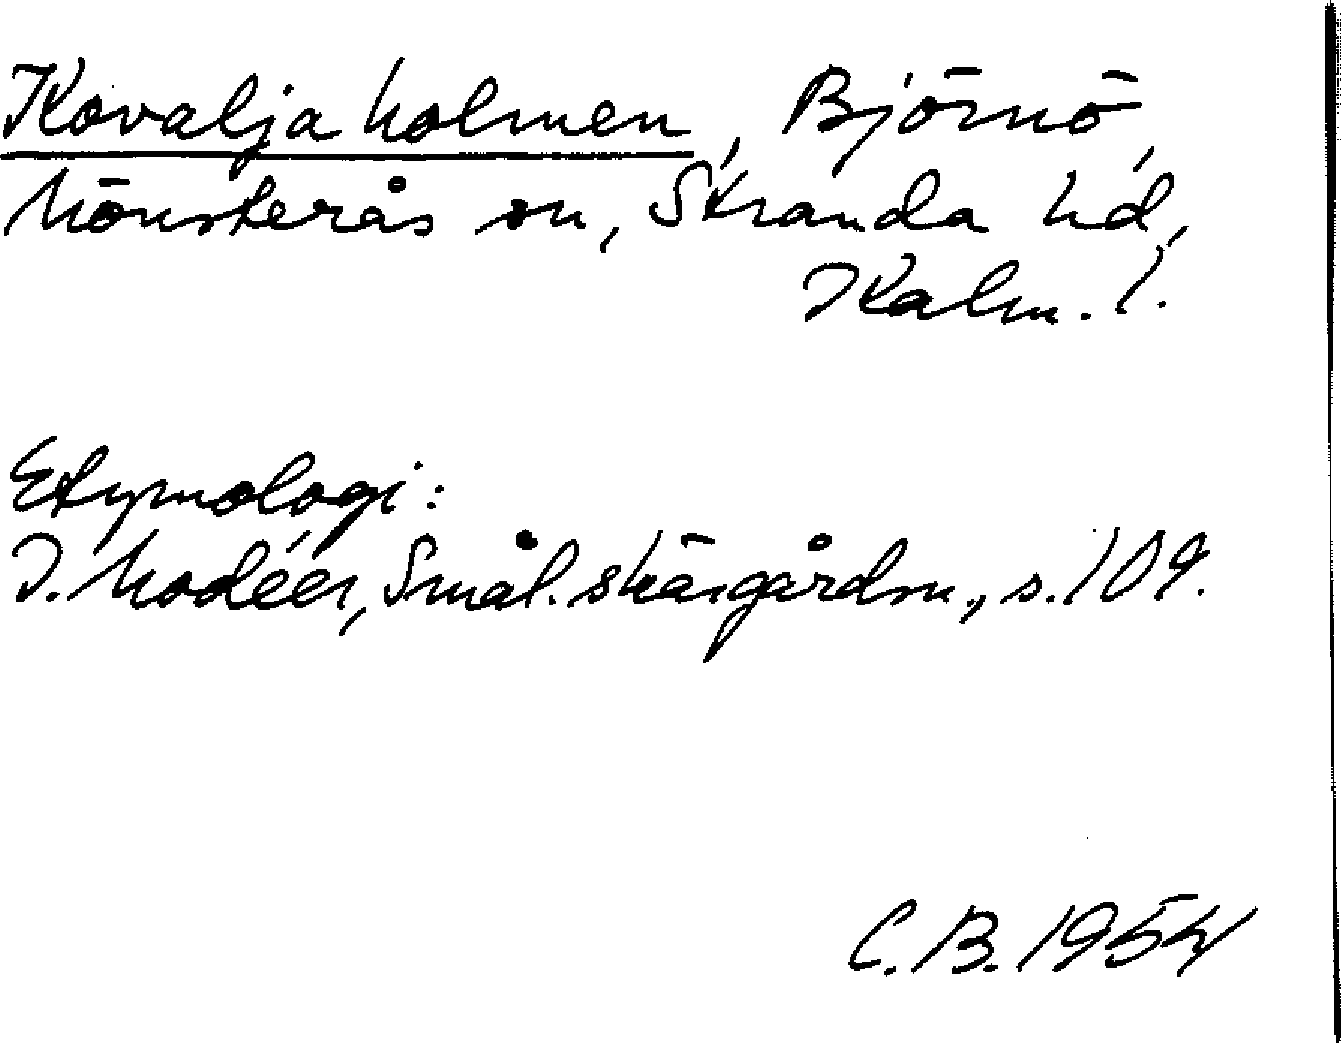 Kovaljaholmen, Björnö,
Mönsterås sn, Stranda hd,
Kalm. l.
Etymologi:
I. Modéer, Smål. skärgårdsn., s. 109.
C.B. 1954